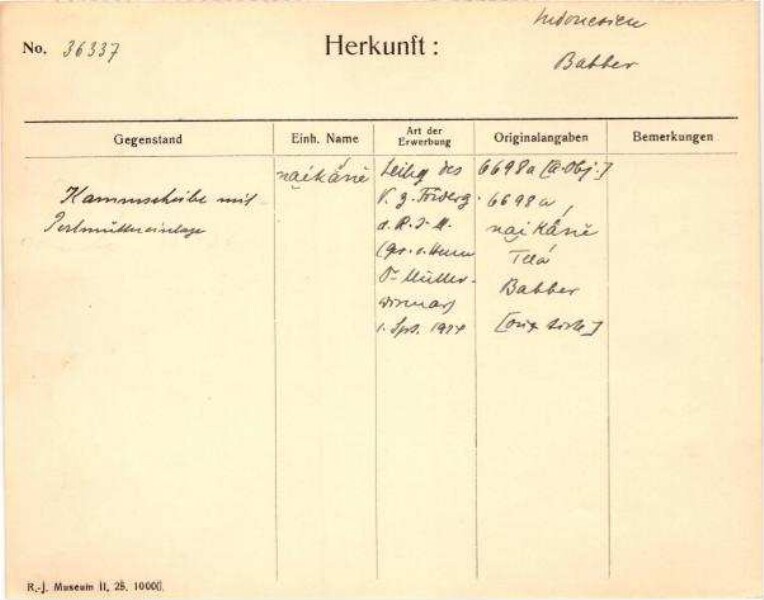 No. 36337
Herkunft:
Indonesien
Babber
Gegenstand
Einh. Name
Art der Erwerbung
Originalangaben
Bemerkungen
Kammscheibe mit
Perlmuttereinlage
naikánĕ
Leihg des
V. z. Förderg.
d. R. J. M.
Dr Müller-
Wismar)
1. Spt. 1924
6698a [a. Obj.]
6698a
naikánĕ
Telá
Babber
R.-J. Museum II, 25. 10000.